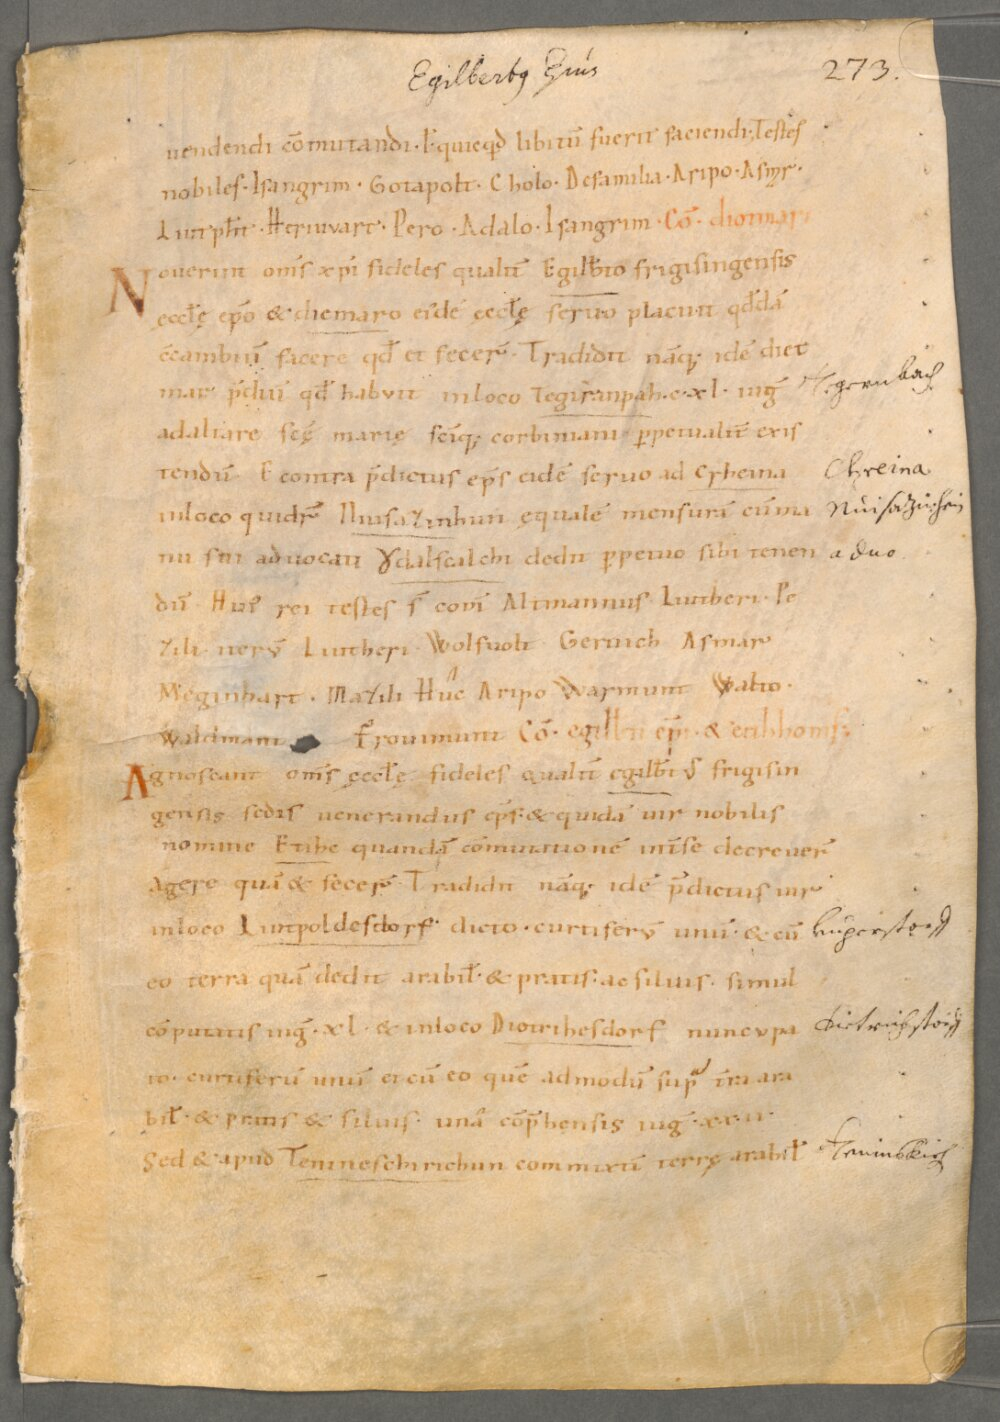 Egilbertꝯ Ep̃us
273.
uendendi cōmutandi · ł quicqd̄ libitū fuerit faciendi; Testes
nobiles · Isangrim · Gotapolt · Cholo · De familia · Aripo · Asmr̄ ·
Liutpht · Heriuuart · Pero · Adalo · Isangrim · Cō · diotmari
Nouerint om̄s xp̄i fideles qualit̄ Egilb̄to frigisingensis
ęccłę ep̄o & diemaro eide᷉ ęccłę seruo placuit qd̄dā
c̄cambiū facere qd̄ et fecer̄ · Tradidit nāq; idē diet
mar p̄diū qd̄ habuit in loco Tegiranpah · c · xl · iug̃
Tegernbach
ad altare sc̄ę marię sc̄iq; corbiniani p̄petualit̄ exis
tendū · E contra p̄dictus ep̄s eidē seruo ad Crheina
Chreina
in loco quidr̄ Niusazinhun ęqualē mensurā cū ma
Niusatzinhun
nu sui aduocati Ꝩdalscalchi dedit p̄petuo sibi tenen
a duo
dū · Huī rei testes s̄ coōm Altmannus · Liutheri · Pe
zili · iterū Liutheri · Wolfuolt · Geruuich Asmar
Meginhart · Mazili Huc Aripo Warmunt Walto ·
Waldmann Frouimunt Cō · egilb̄ti ep̄i · &
Agnoscant om̄s ęccłę fideles qualit̄ egilb̄tꝯ frigisin
gensis sedis uenerandus ep̄s · & quidā uir nobilis
nomine Etihe quandā cōmutationē int̄ se decreuer̄
agere quā & fecer̄ · Tradidit nāq; idē p̄dictus uir
in loco Liutpoldesdorf · dicto · curtiferū unū · & cū
eo terra quā dedit arabił · & pratis · ac siluis · simul
cōputatis iug̃ · xl · & in loco Diotrihesdorf nuncupa
to · curtiferū unū et cū eo quē admodū supᵃ t̄ra ara
bił · & pratis & siluis · unā cōp̄hensis iug̃ · xx · ii ·
Sed & apud Tenineschirichun commixtū terrę arabił